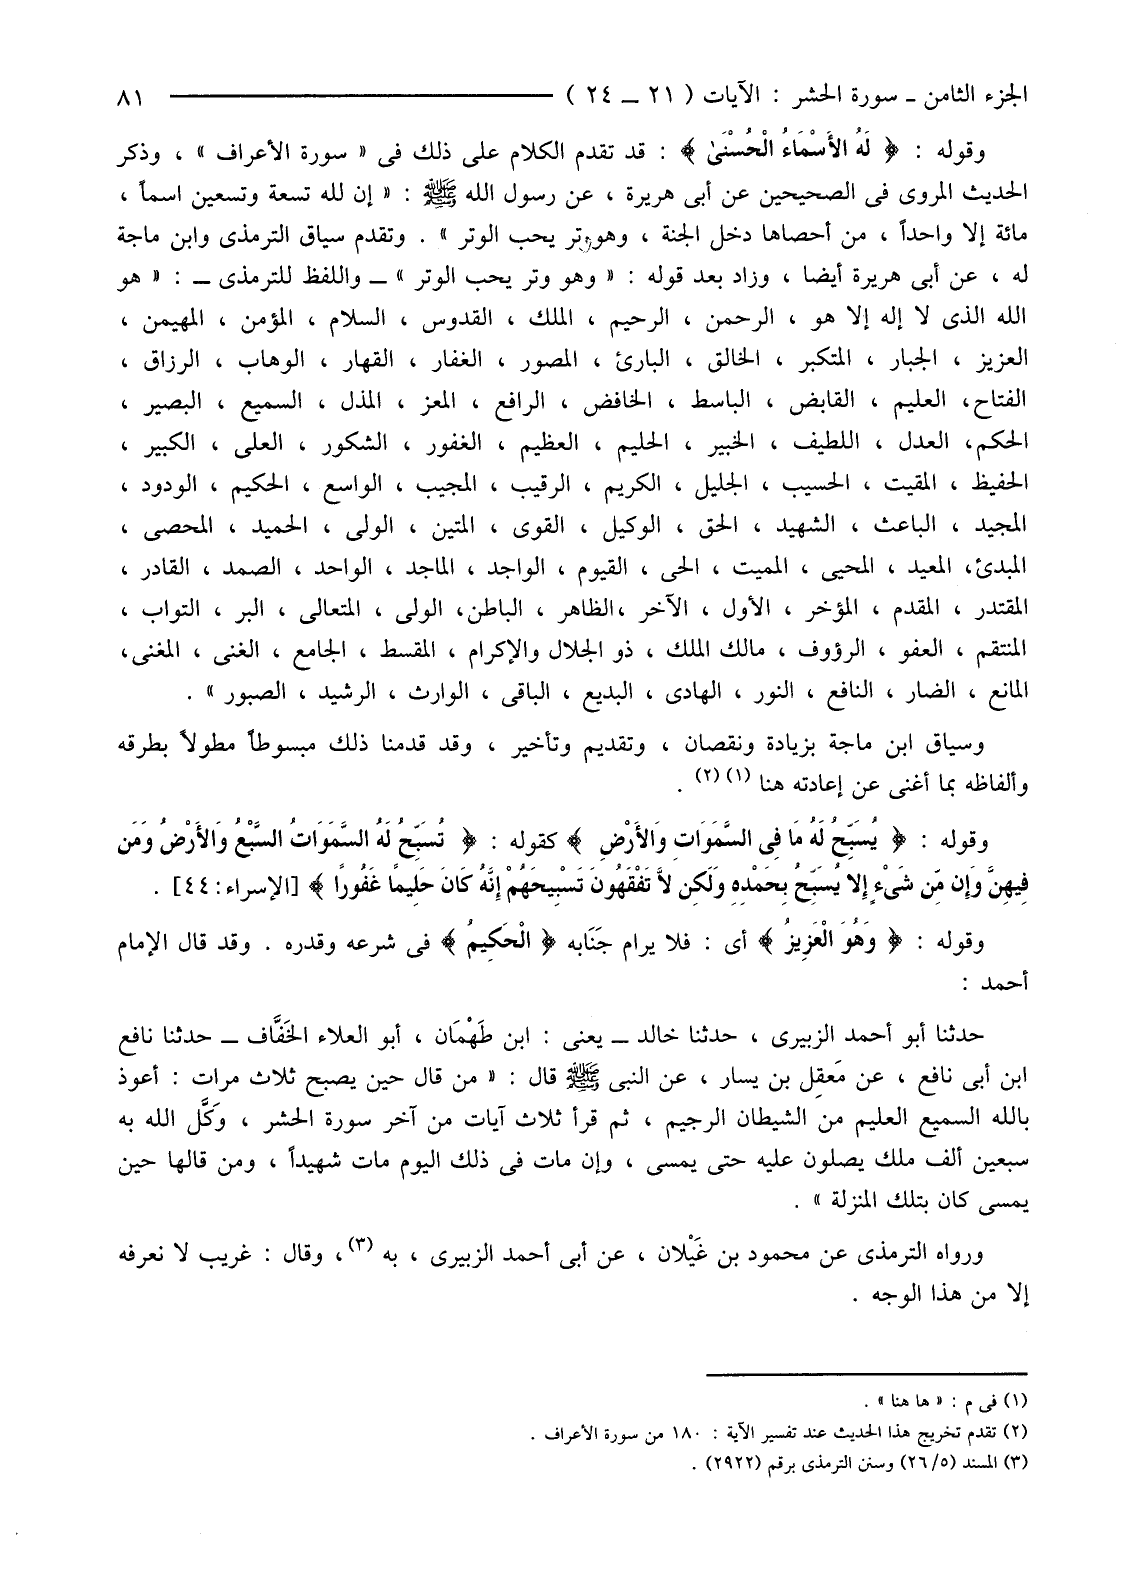 الجزء الثامن ـ سورة الحشر : الآيات ( ٢١ ـ ٢٤ ) ٨١
وقوله : ﴿ لَهُ الأَسْمَاءُ الْحُسْنَىٰ ﴾ : قد تقدم الكلام على ذلك فى « سورة الأعراف » ، وذكر
الحديث المروى فى الصحيحين عن أبى هريرة ، عن رسول الله ﷺ : « إن لله تسعة وتسعين اسماً ،
مائة إلا واحداً ، من أحصاها دخل الجنة ، وهو وتر يحب الوتر » . وتقدم سياق الترمذى وابن ماجة
له ، عن أبى هريرة أيضا ، وزاد بعد قوله : « وهو وتر يحب الوتر » ـ واللفظ للترمذى ـ : « هو
الله الذى لا إله إلا هو ، الرحمن ، الرحيم ، الملك ، القدوس ، السلام ، المؤمن ، المهيمن ،
العزيز ، الجبار ، المتكبر ، الخالق ، البارئ ، المصور ، الغفار ، القهار ، الوهاب ، الرزاق ،
الفتاح، العليم ، القابض ، الباسط ، الخافض ، الرافع ، المعز ، المذل ، السميع ، البصير ،
الحكم، العدل ، اللطيف ، الخبير ، الحليم ، العظيم ، الغفور ، الشكور ، العلى ، الكبير ،
الحفيظ ، المقيت ، الحسيب ، الجليل ، الكريم ، الرقيب ، المجيب ، الواسع ، الحكيم ، الودود ،
المجيد ، الباعث ، الشهيد ، الحق ، الوكيل ، القوى ، المتين ، الولى ، الحميد ، المحصى ،
المبدئ، المعيد ، المحيى ، المميت ، الحى ، القيوم ، الواجد ، الماجد ، الواحد ، الصمد ، القادر ،
المقتدر ، المقدم ، المؤخر ، الأول ، الآخر ،الظاهر ، الباطن، الولى ، المتعالى ، البر ، التواب ،
المنتقم ، العفو ، الرؤوف ، مالك الملك ، ذو الجلال والإكرام ، المقسط ، الجامع ، الغنى ، المغنى،
المانع ، الضار ، النافع ، النور ، الهادى ، البديع ، الباقى ، الوارث ، الرشيد ، الصبور » .
وسياق ابن ماجة بزيادة ونقصان ، وتقديم وتأخير ، وقد قدمنا ذلك مبسوطاً مطولاً بطرقه
وألفاظه بما أغنى عن إعادته هنا (١) (٢) .
وقوله : ﴿ يُسَبِّحُ لَهُ مَا فِى السَّمَوَاتِ وَالأَرْضِ ﴾ كقوله : ﴿ تُسَبِّحُ لَهُ السَّمَوَاتُ السَّبْعُ وَالأَرْضُ وَمَن
فِيهِنَّ وَإِن مِّن شَىْءٍ إِلا يُسَبِّحُ بِحَمْدِهِ وَلَكِن لاَّ تَفْقَهُونَ تَسْبِيحَهُمْ إِنَّهُ كَانَ حَلِيمًا غَفُورًا ﴾ [الإسراء: ٤٤] .
وقوله : ﴿ وَهُوَ الْعَزِيزُ ﴾ أى : فلا يرام جَنَابه ﴿ الْحَكِيمُ ﴾ فى شرعه وقدره . وقد قال الإمام
أحمد :
حدثنا أبو أحمد الزبيرى ، حدثنا خالد ـ يعنى : ابن طَهْمَان ، أبو العلاء الخَفَّاف ـ حدثنا نافع
ابن أبى نافع ، عن مَعقِل بن يسار ، عن النبى ﷺ قال : « من قال حين يصبح ثلاث مرات : أعوذ
بالله السميع العليم من الشيطان الرجيم ، ثم قرأ ثلاث آيات من آخر سورة الحشر ، وَكَّل الله به
سبعين ألف ملك يصلون عليه حتى يمسى ، وإن مات فى ذلك اليوم مات شهيداً ، ومن قالها حين
يمسى كان بتلك المنزلة » .
ورواه الترمذى عن محمود بن غَيْلان ، عن أبى أحمد الزبيرى ، به (٣) ، وقال : غريب لا نعرفه
إلا من هذا الوجه .
(١) فى م : « ها هنا » .
(٢) تقدم تخريج هذا الحديث عند تفسير الآية : ١٨٠ من سورة الأعراف .
(٣) المسند (٢٦/٥) وسنن الترمذى برقم (٢٩٢٢) .